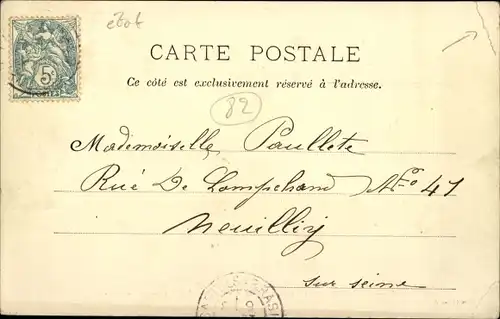 état
CARTE POSTALE
Ce côté est exclusivement réservé à l'adresse.
82
Mademoiselle Paullete
Rue De Lompchand No 41
Neuilliy
sur seine